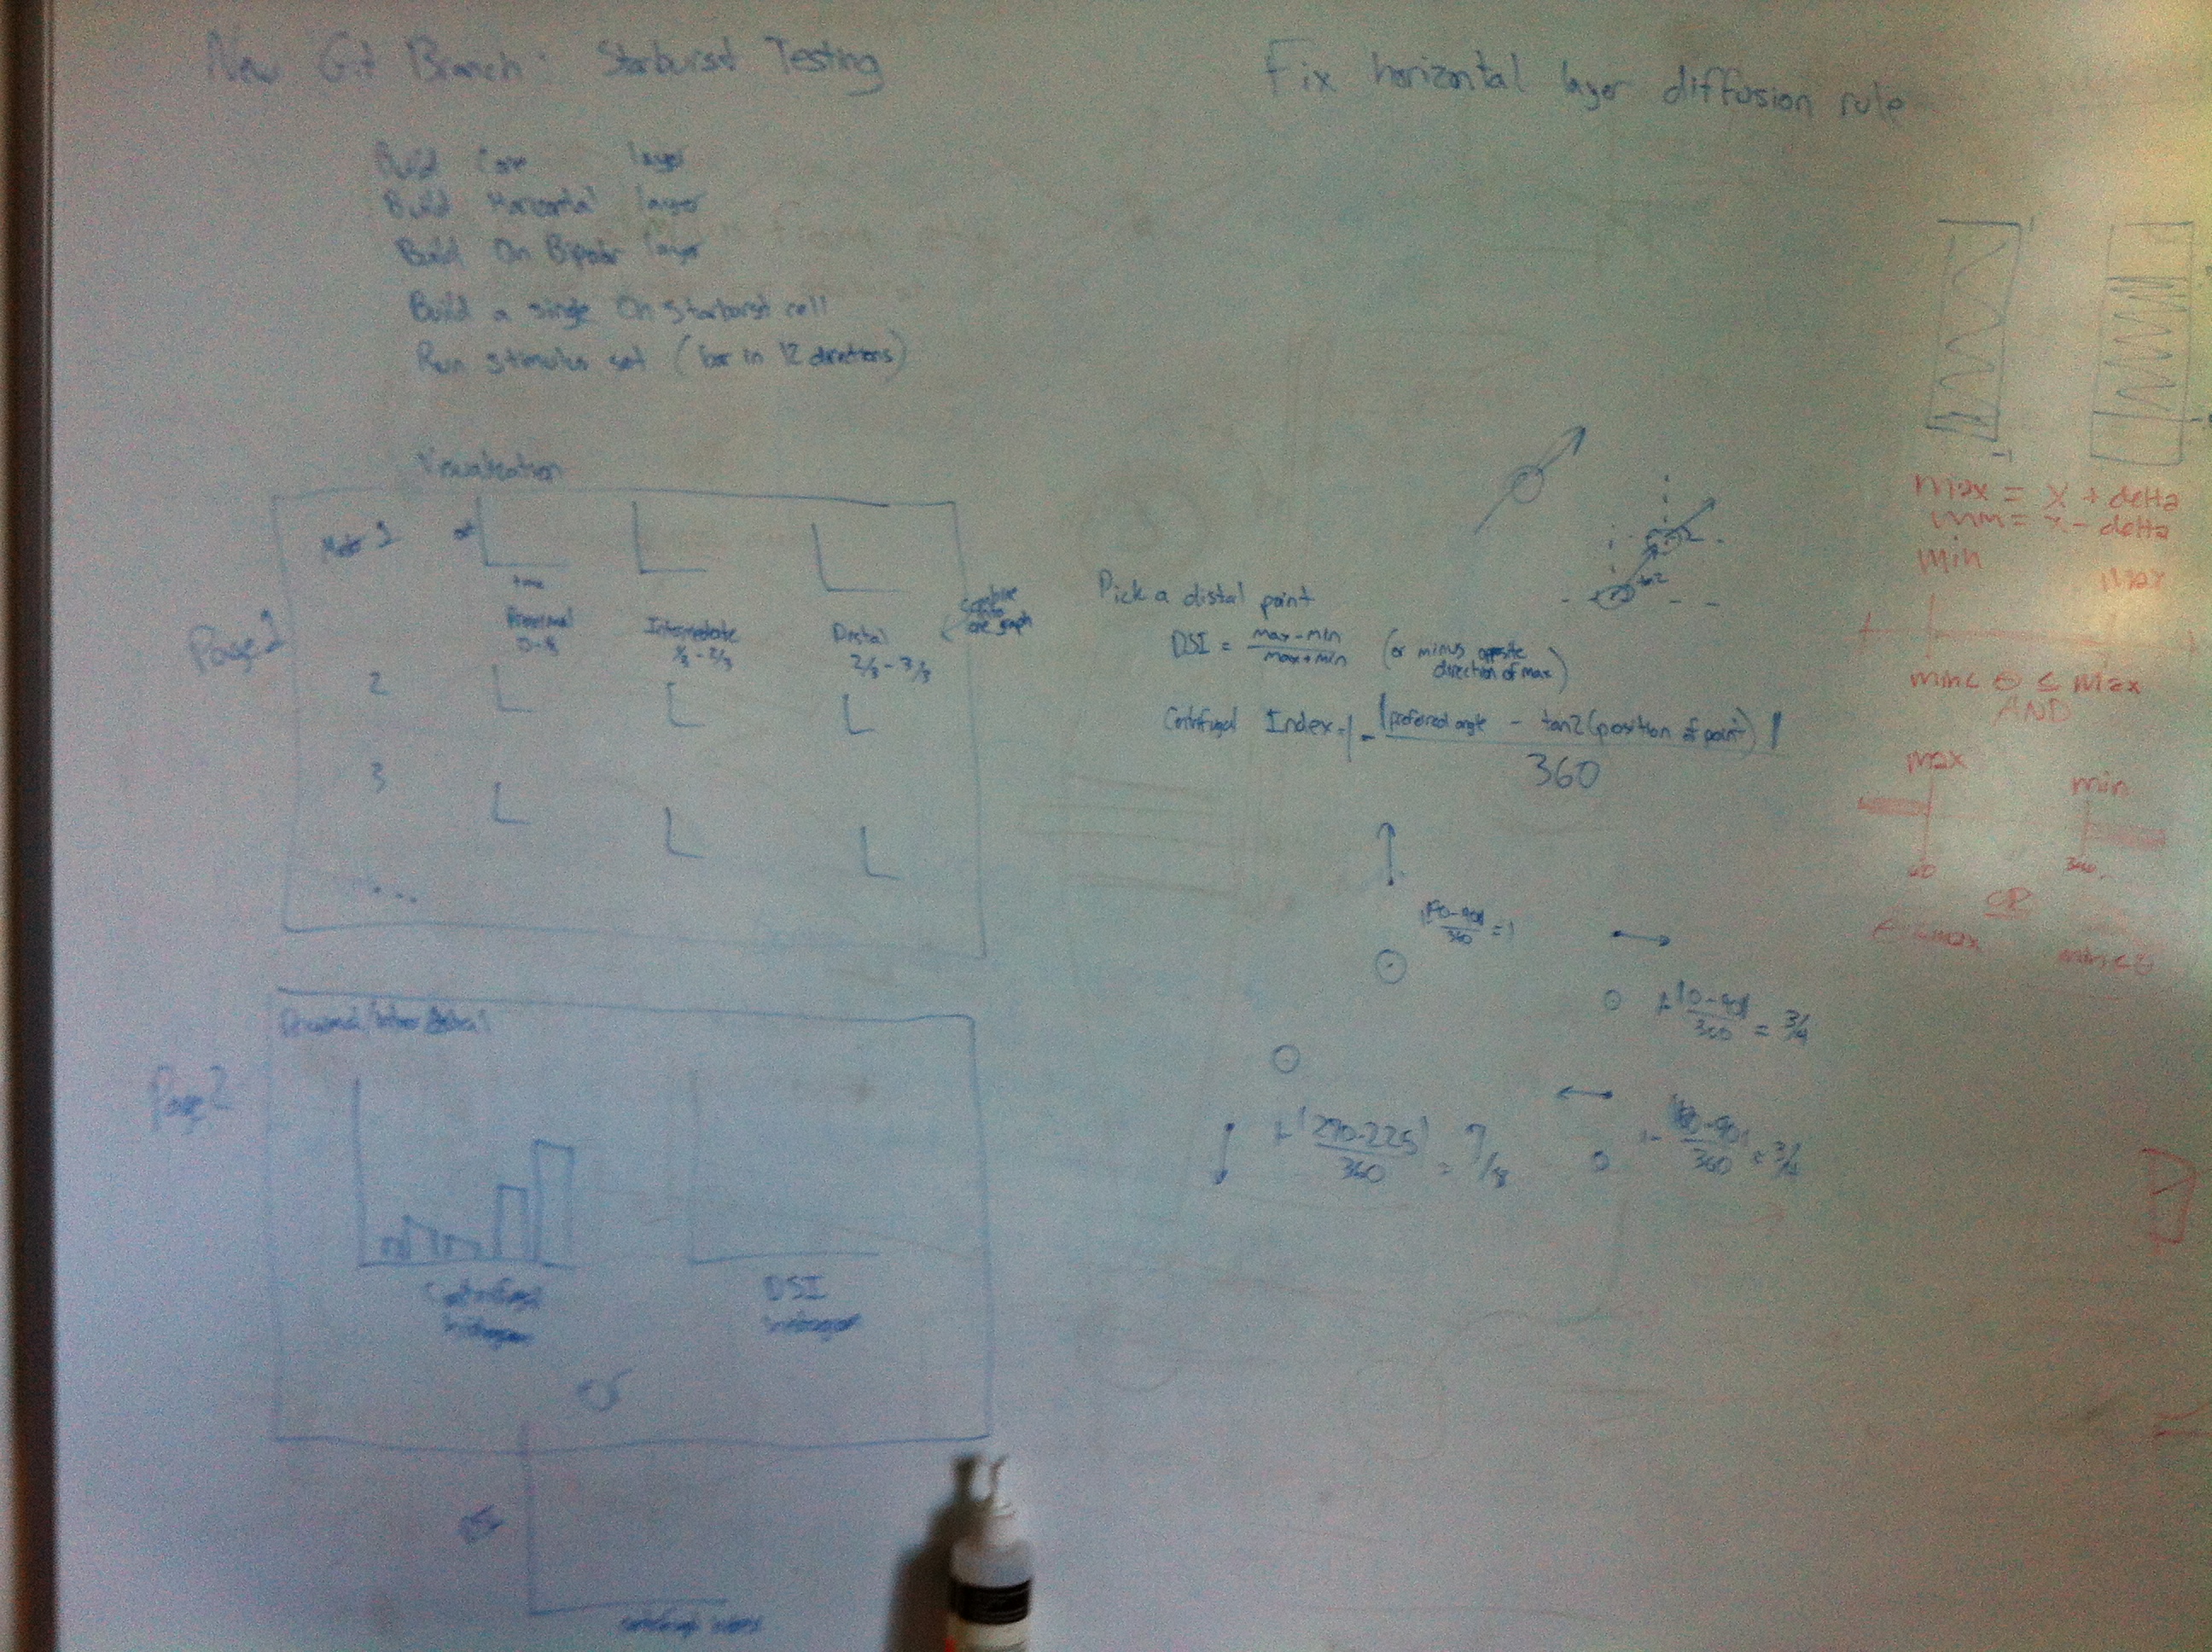 New Git Branch: Starburst Testing
Build Cone layer
Build Horizontal layer
Build On Bipolar layer
Build a single On Starburst cell
Run stimulus set (bar in 12 directions)
Visualization
Page 1
time
Proximal
Intermediate
1/3 - 2/3
Distal
2/3 - 3/3
Combine
into
one graph
2
3
...
Page 2
Centrifugal
histogram
DSI
histogram
or
DSI
centrifugal index
Fix horizontal layer diffusion rule
tan2
Pick a distal point
DSI = max-min / max+min (or minus opposite
direction of max)
Centrifugal Index = 1 - |preferred angle - tan2(position of point)| / 360
|90-90| / 360 = 1
1-|0-90| / 360 = 3/4
1-|270-225| / 360 = 7/8
1-|180-90| / 360 = 3/4
max = x + delta
min = x - delta
min
max
min < θ ≤ max
AND
max
min
OR
θ < max
min < θ